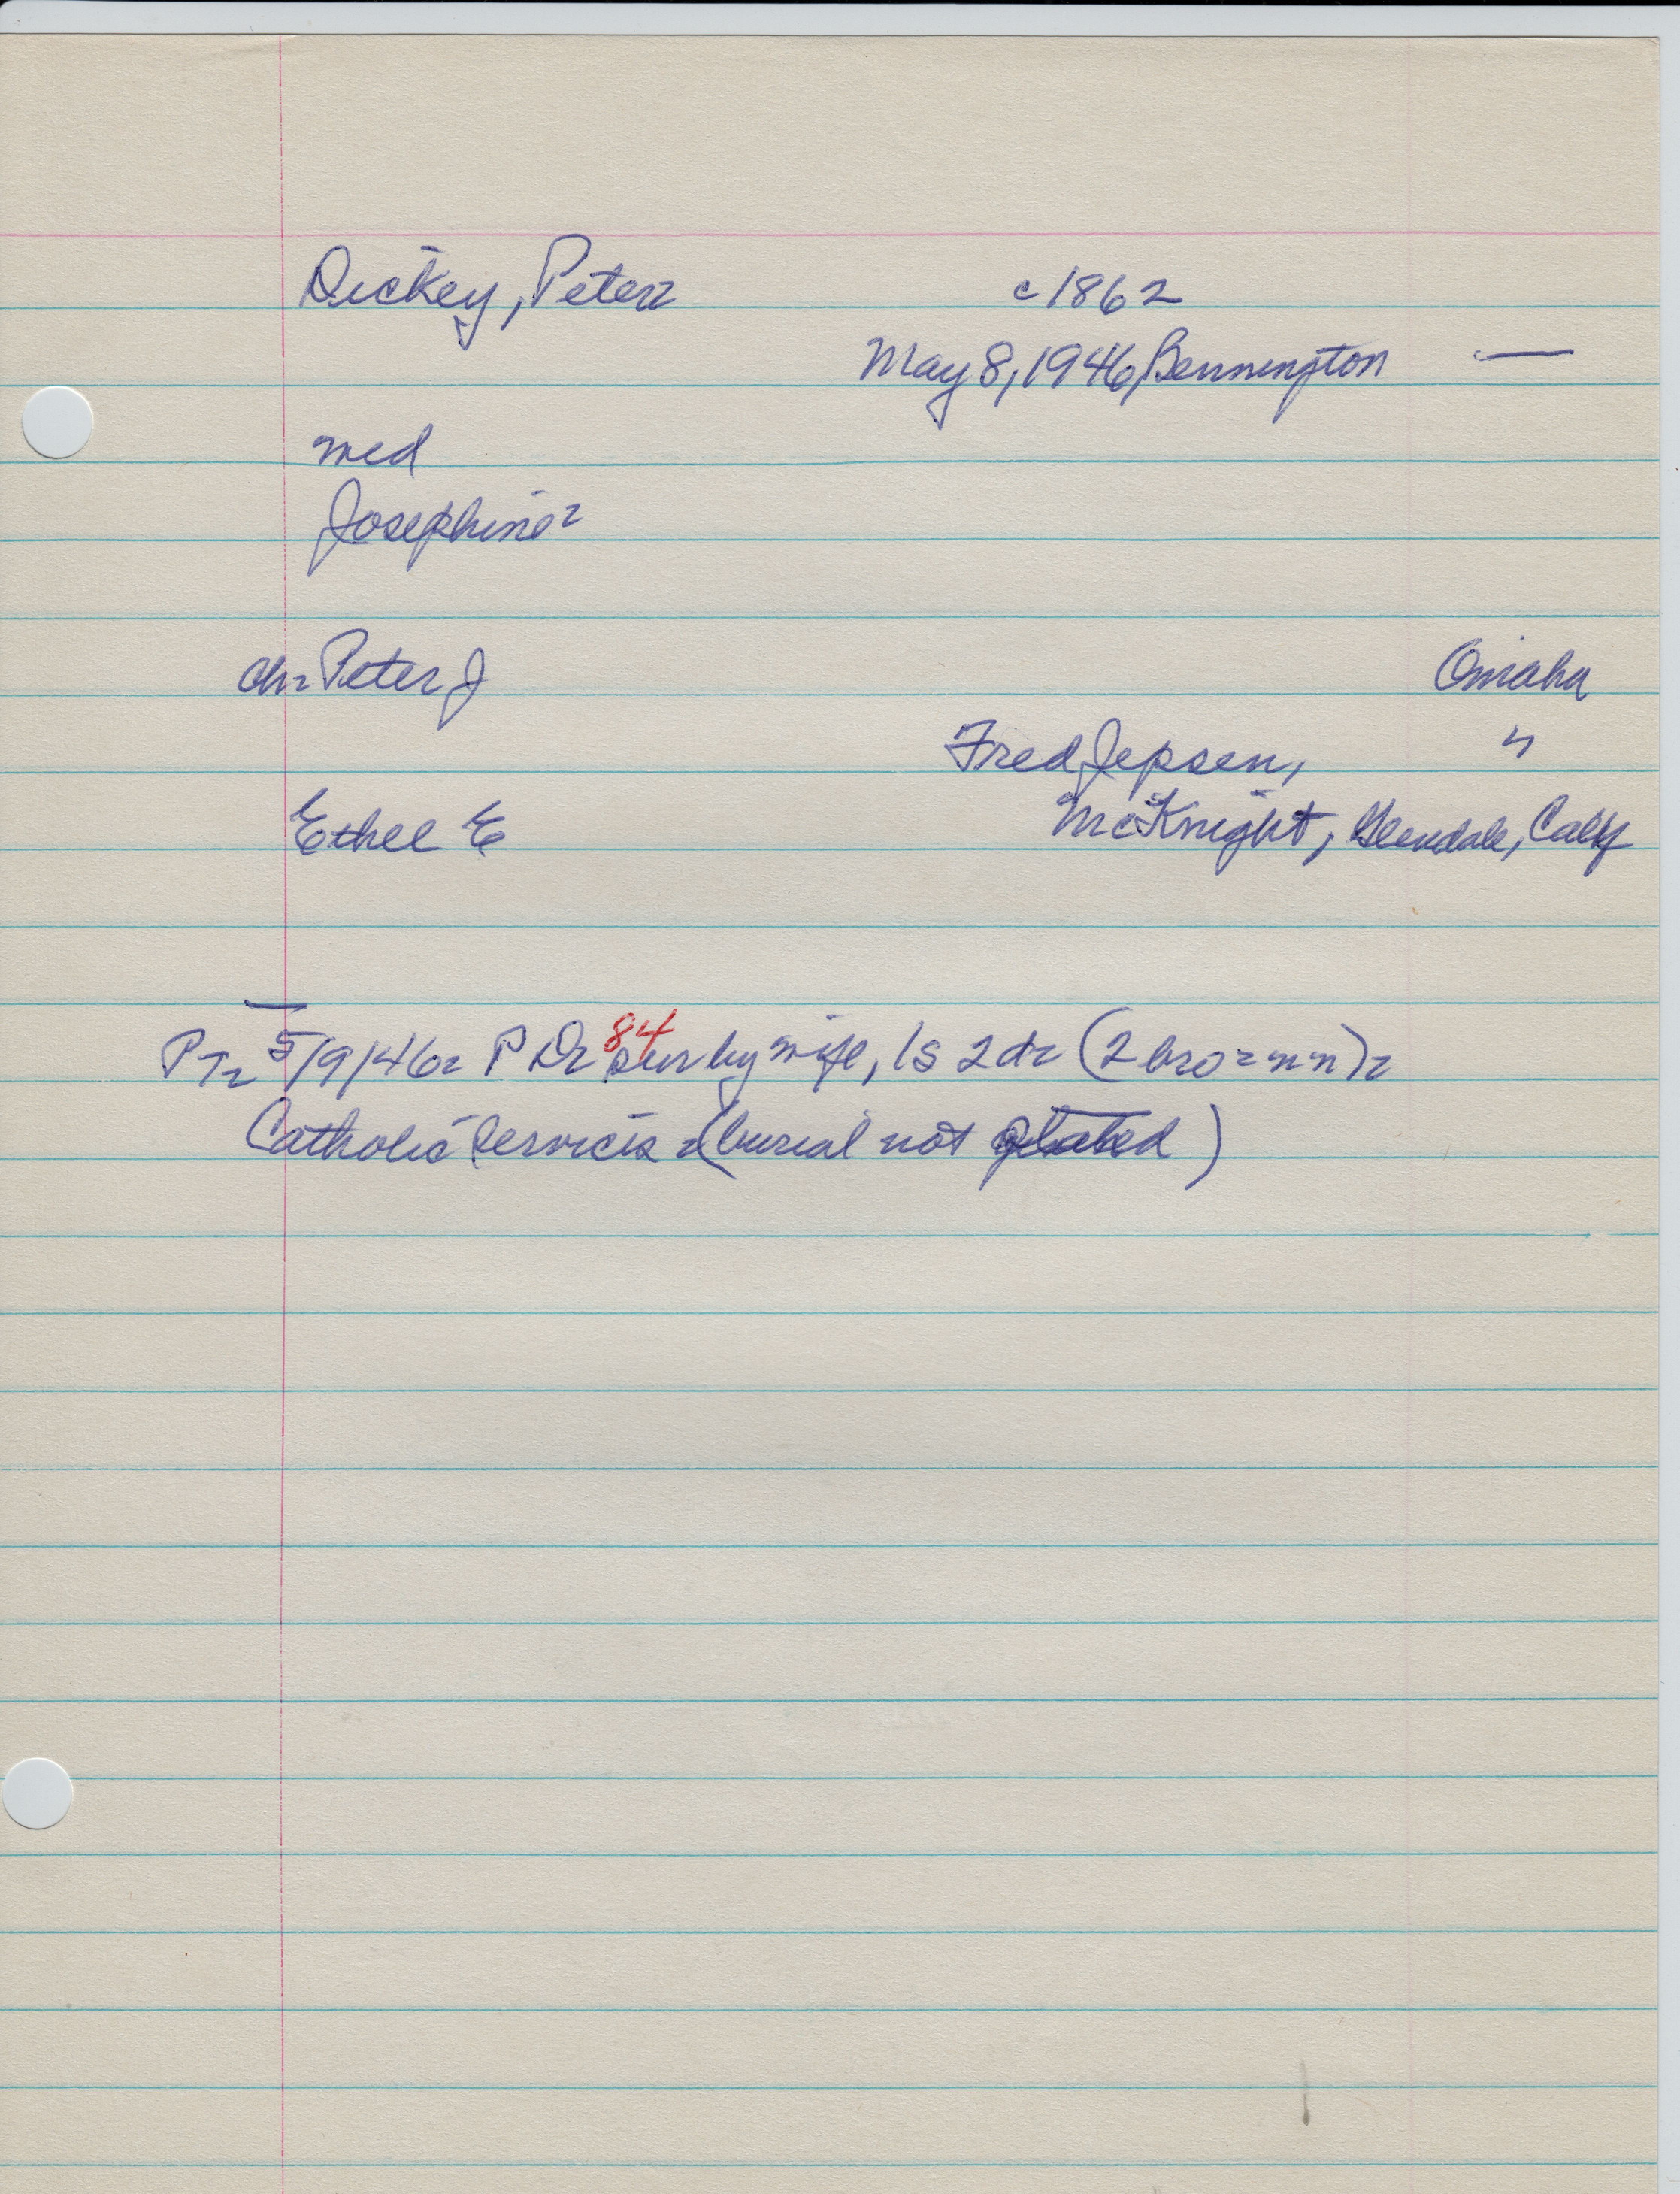 Dickey, Peter c1862
May 8, 1946, Bennington —
med
Josephine
ch- Peter J Omaha
Fred Jepsen, "
Ethel E McKnight, Glendale, Calif
PT- 5/9/46- P D- 84 sur by wife, 1s 2d- (2 bro-nn)-
Catholic Services - (burial not stated)